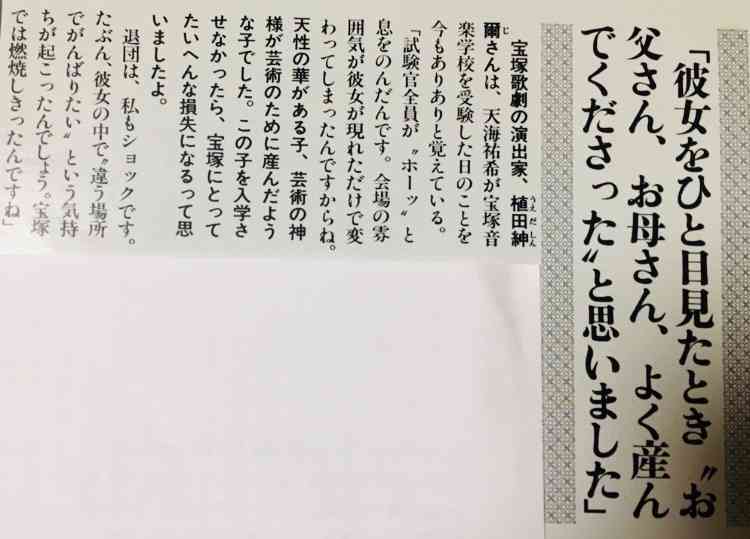 「彼女をひと目見たとき〝お
父さん、お母さん、よく産ん
でくださった〟と思いました」
宝塚歌劇の演出家、植田紳
爾さんは、天海祐希が宝塚音
楽学校を受験した日のことを
今もありありと覚えている。
「試験官全員が〝ホーッ〟と
息をのんだんです。会場の雰
囲気が彼女が現れただけで変
わってしまったんですからね。
天性の華がある子、芸術の神
様が芸術のために産んだよう
な子でした。この子を入学さ
せなかったら、宝塚にとって
たいへんな損失になるって思
いましたよ。
退団は、私もショックです。
たぶん、彼女の中で〝違う場所
でがんばりたい〟という気持
ちが起こったんでしょう。宝塚
では燃焼しきったんですね」